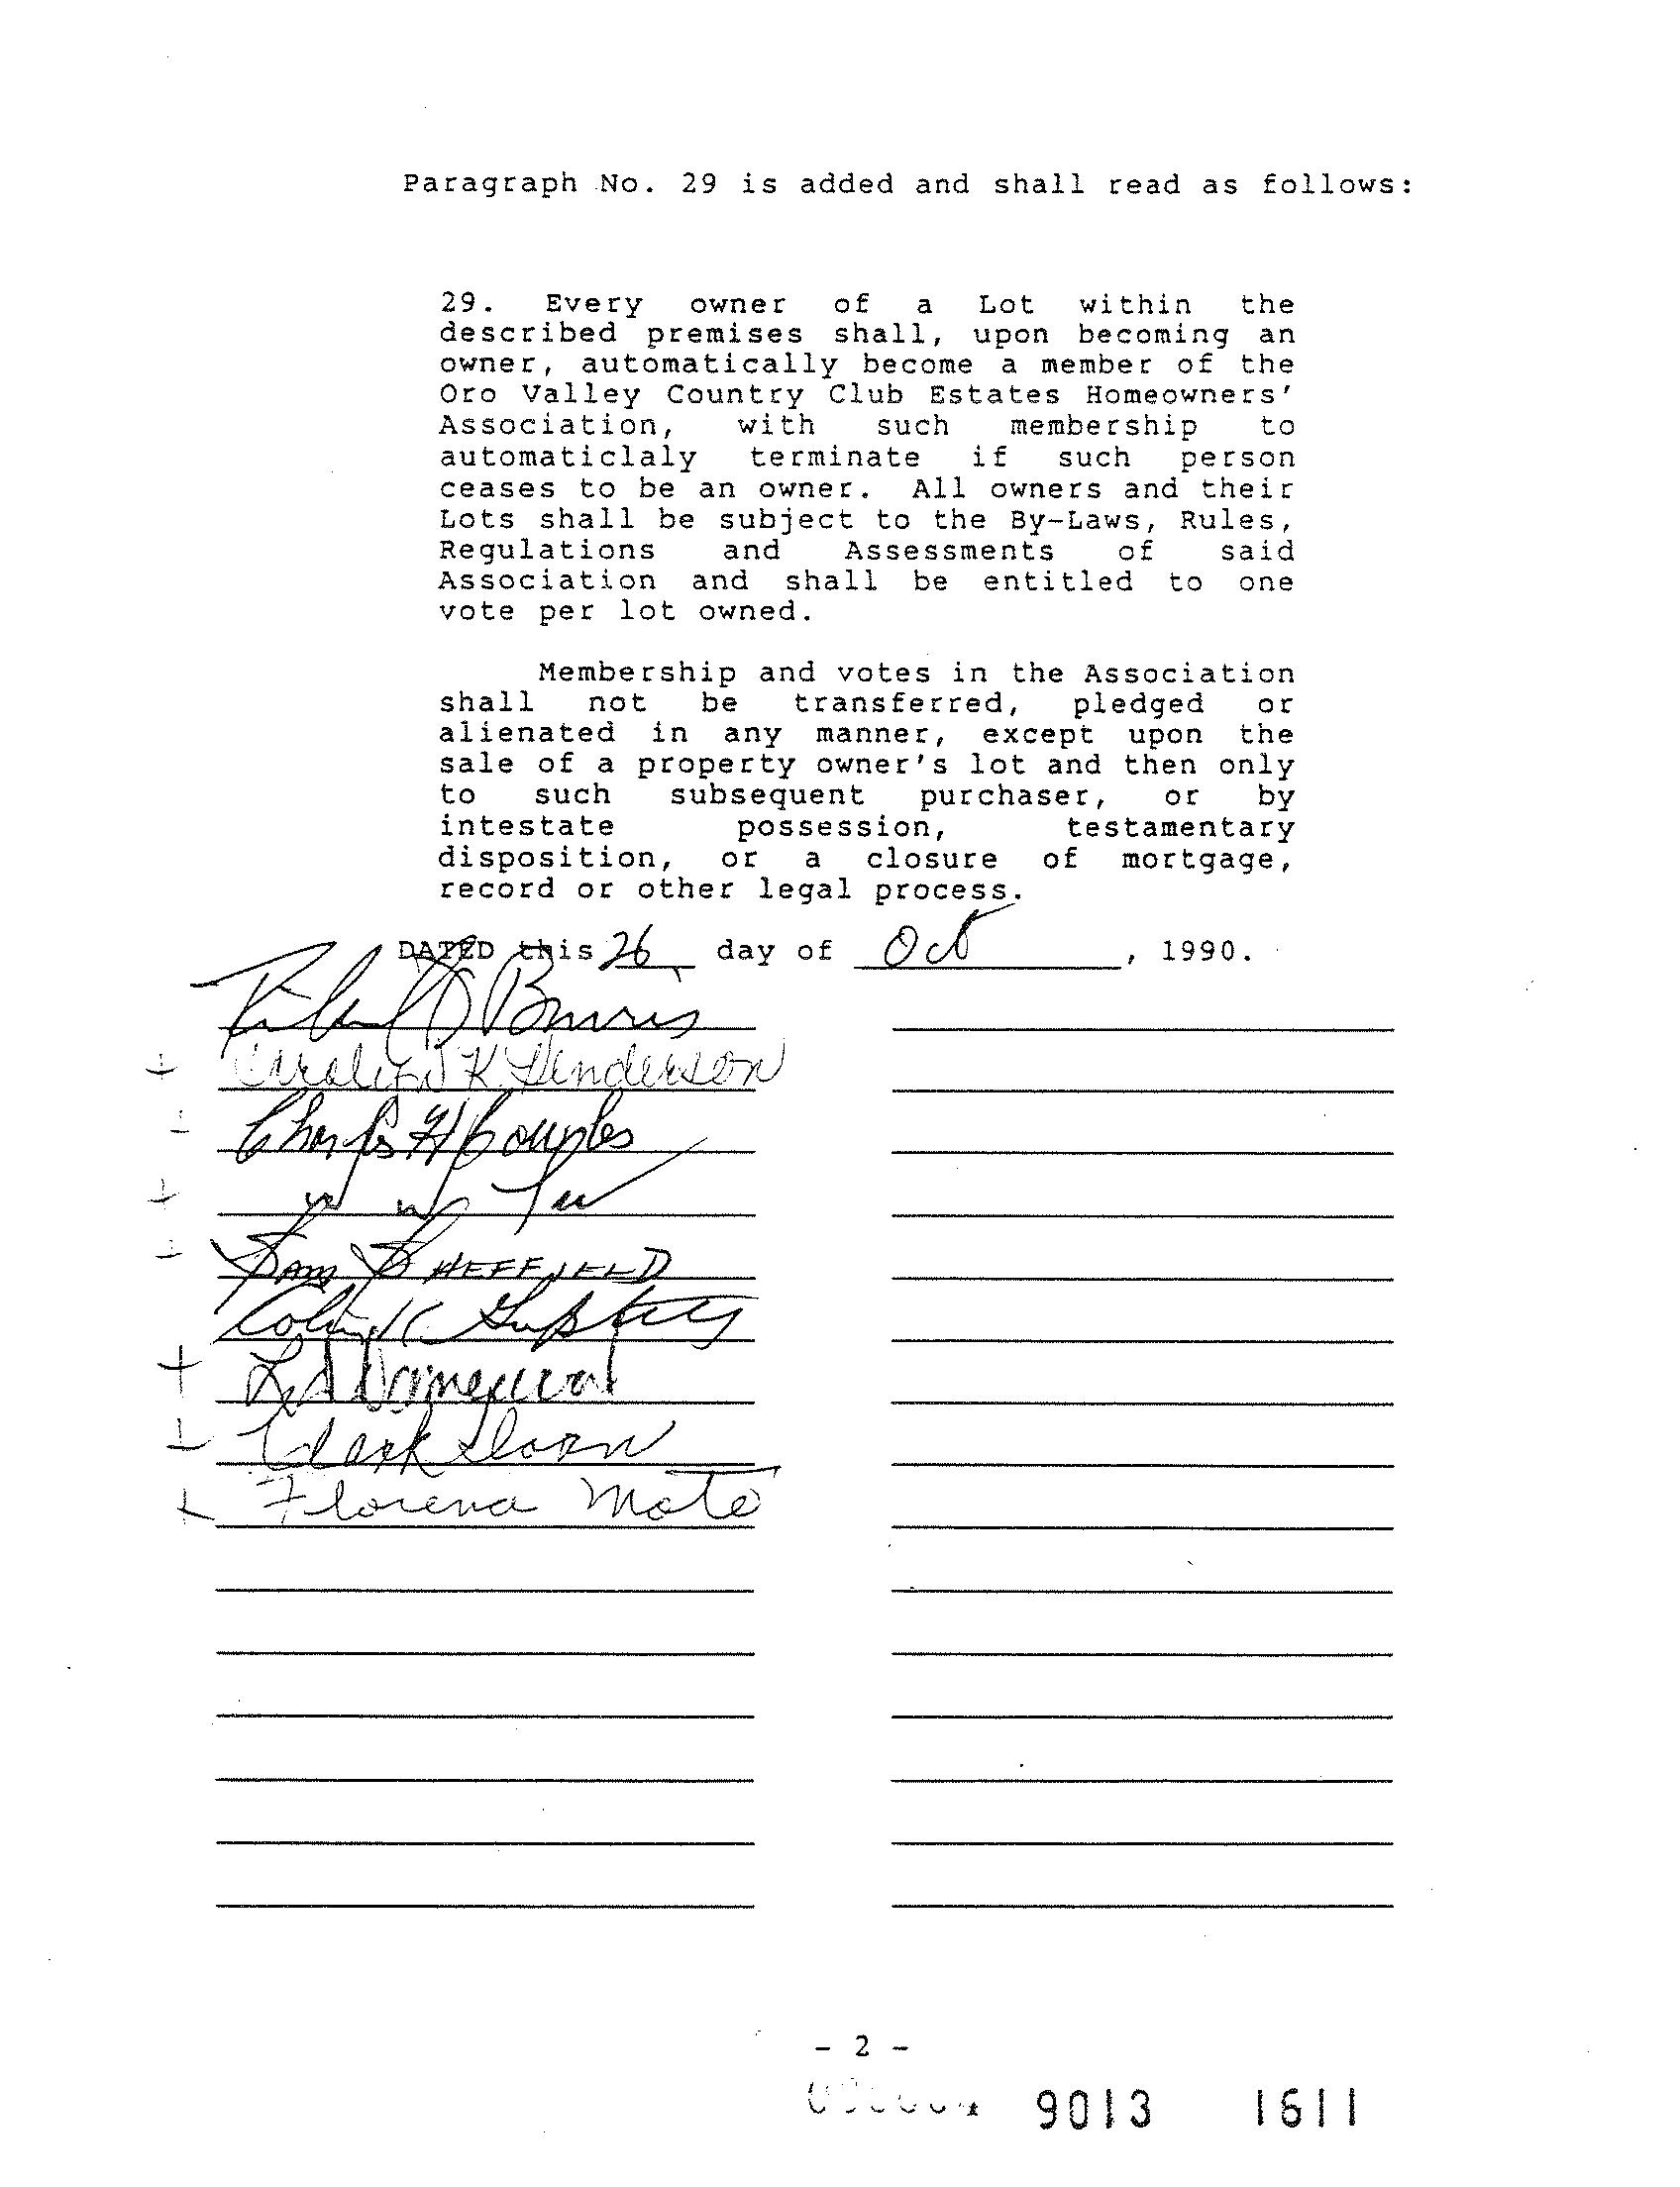 Paragraph No. 29 is added and shall read as follows:
29. Every owner of a Lot within the
described premises shall, upon becoming an
owner, automatically become a member of the
Oro Valley Country Club Estates Homeowners'
Association, with such membership to
automaticlaly terminate if such person
ceases to be an owner. All owners and their
Lots shall be subject to the By-Laws, Rules,
Regulations and Assessments of said
Association and shall be entitled to one
vote per lot owned.
Membership and votes in the Association
shall not be transferred, pledged or
alienated in any manner, except upon the
sale of a property owner's lot and then only
to such subsequent purchaser, or by
intestate possession, testamentary
disposition, or a closure of mortgage,
record or other legal process.
DATED this 26 day of Oct, 1990.
K. Henderson
Charles H
Sam SHEFFIELD
Clark
Florena
- 2 -
9013 1611